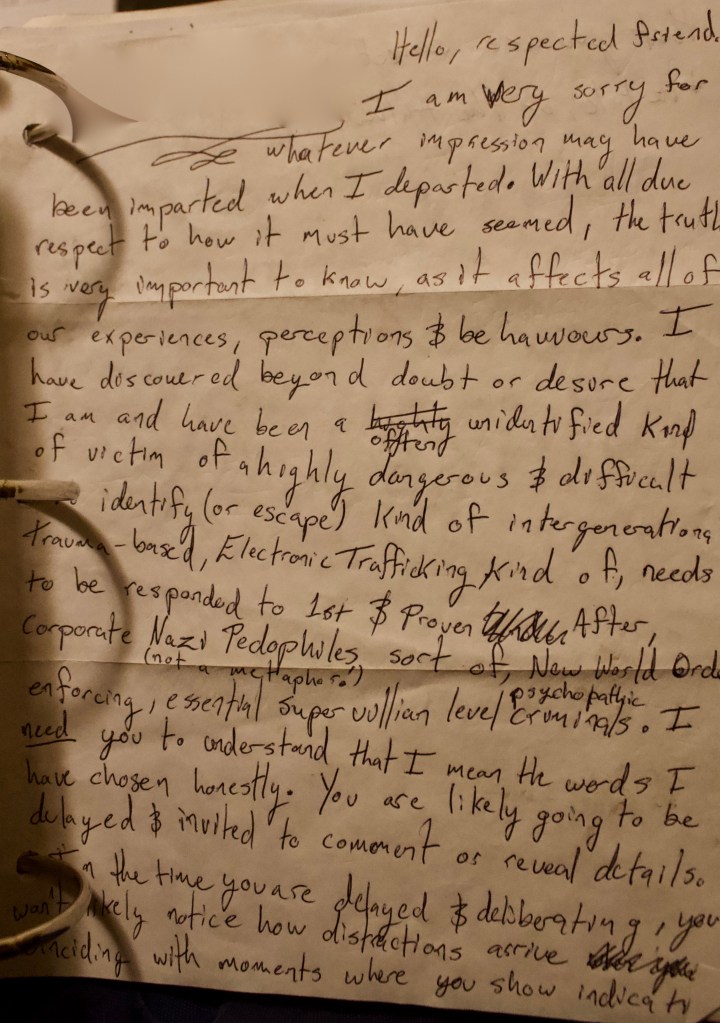 Hello, respected friend.
I am very sorry for
whatever impression may have
been imparted when I departed. With all due
respect to how it must have seemed, the truth
is very important to know, as it affects all of
our experiences, perceptions & behauvours. I
have discovered beyond doubt or desire that
I am and have been a highly often unidentified kind
of victim of a highly dangerous & difficult
identify (or escape) kind of intergenerationa
trauma-based, Electronic Trafficking kind of, needs
to be responded to 1st & Proven After,
Corporate Nazi Pedophiles, sort of, New World Orde
(not a metaphor!)
enforcing, essential supervillian level psychopathic criminals. I
need you to understand that I mean the words I
have chosen honestly. You are likely going to be
delayed & invited to comment or reveal details.
In the time you are delayed & deliberating, you
won't likely notice how distractions arrive
coinciding with moments where you show indicativ